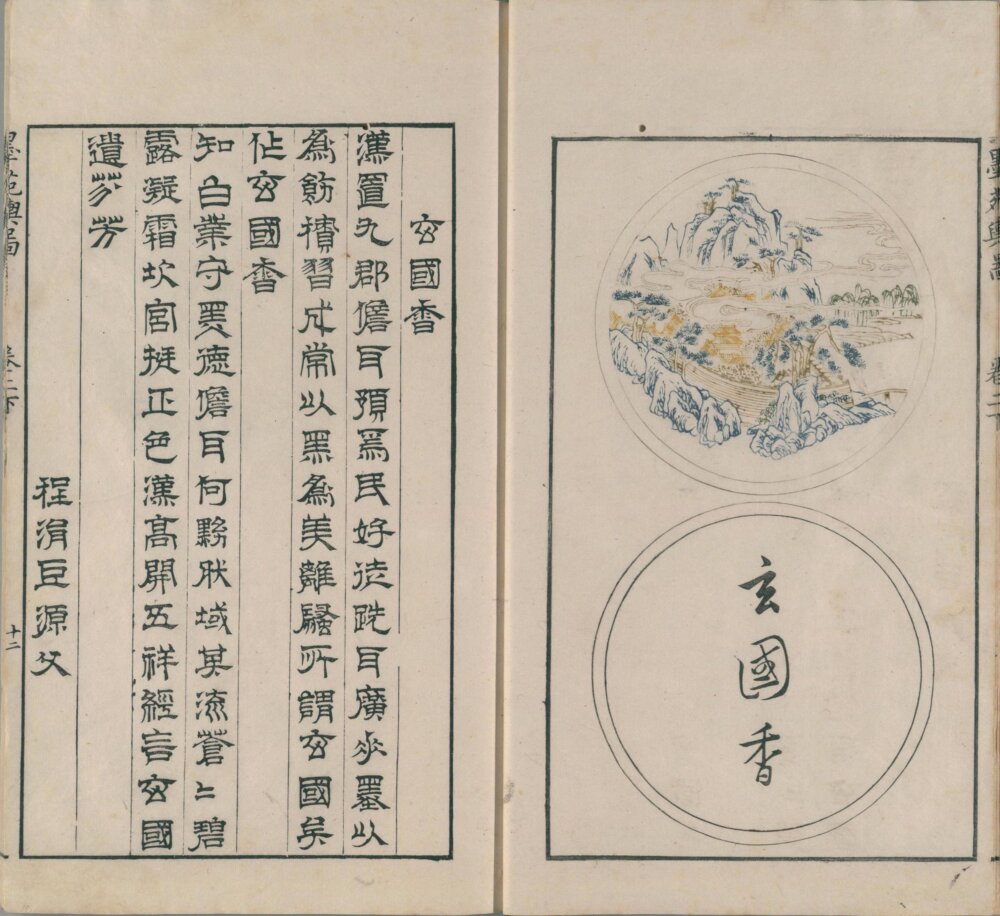 墨苑輿圖 卷二下
玄國香
玄國香
漢置九郡儋耳預焉民好徒跣耳廣垂墨以
為飾積習成常以黑為美離騷所謂玄國矣
作玄國香
知白業守黑德儋耳何黟肰域其流蒼二碧
露凝霜坎宮挺正色漢高開五祥經言玄國
遺芬芳
程涓巨源父
墨苑輿圖 卷二下 十二